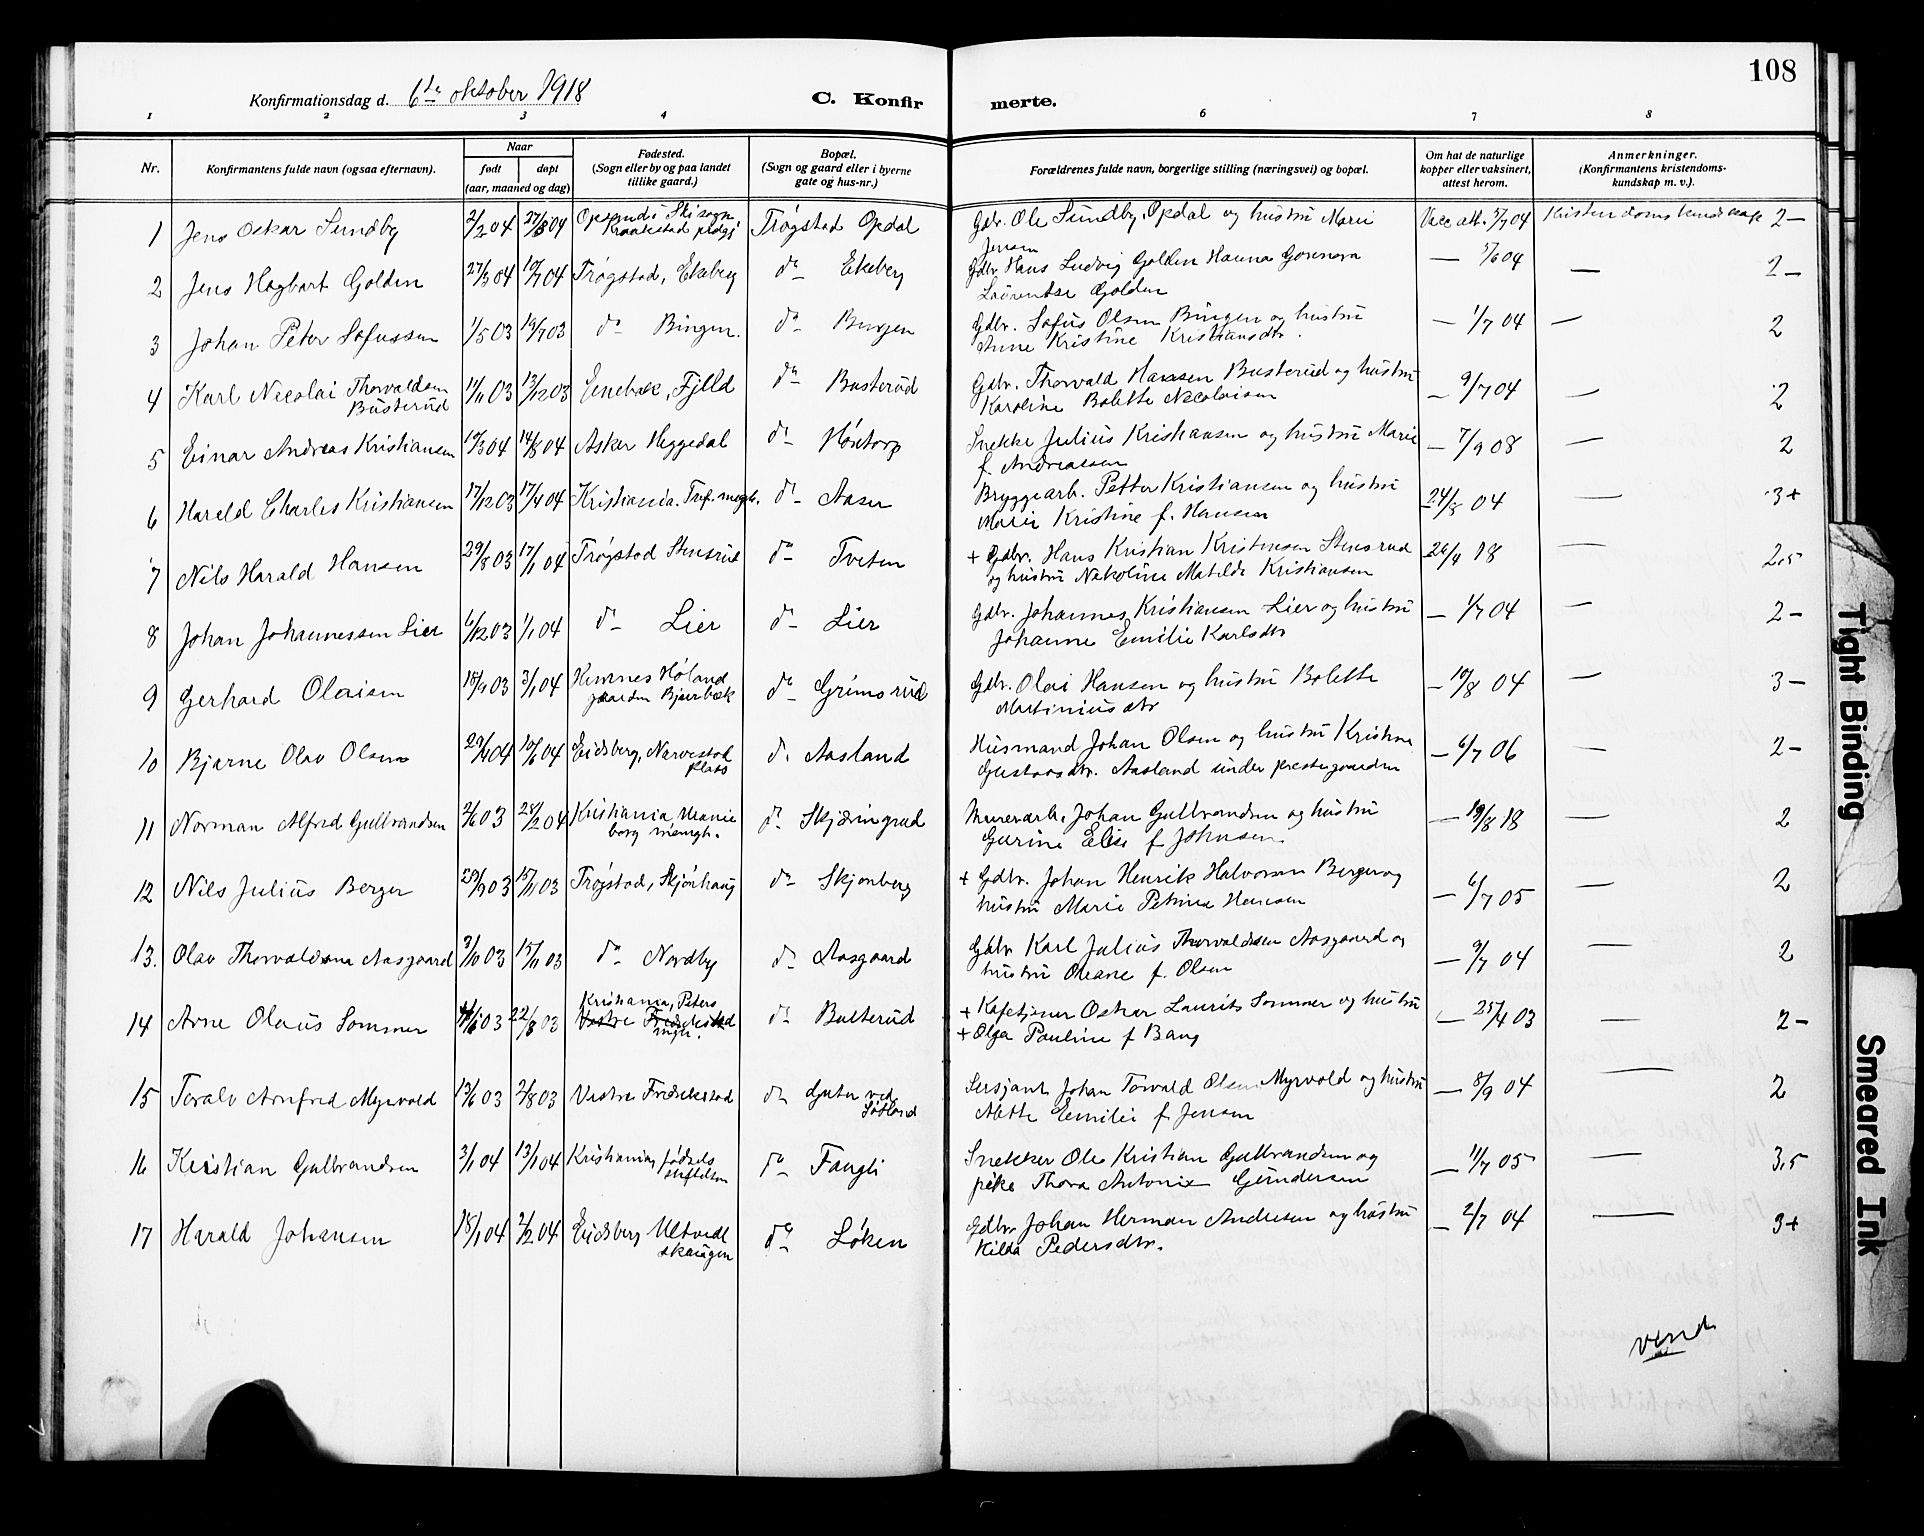 108
Konfirmationsdag d. 6te oktober 1918
C. Konfir
merte.
1 2 3 4 6 7 8
Nr.
Konfirmantens fulde navn (ogsaa efternavn).
Naar
født døpt
(aar, maaned og dag)
Fødested.
(Sogn eller by og paa landet
tillike gaard.)
Bopæl.
(Sogn og gaard eller i byerne
gate og hus-nr.)
Forældrenes fulde navn, borgerlige stilling (næringsvei) og bopæl.
Om hat de naturlige
kopper eller vaksinert,
attest herom.
Anmerkninger.
(Konfirmantens kristendoms-
kundskap m. v.).
1 Jens Oskar Sundby 2/2 04 27/3 04 Ski sogn Trøgstad Opdal Gdbr. Ole Sundby, Opdal og hustru Marie Vacc. att. 5/7 04 Kristendomskundskap 2-
Kraakstad prstgj
Jensen
2 Jens Hagbart Golden 27/3 04 10/7 04 Trøgstad, Ekeberg do Ekeberg Gdbr Hans Ludvig Golden Hanna Gonnora — 5/6 04 — 2-
Laurentse Golden
3 Johan Peter Sofussen 1/5 03 19/7 03 do Bingen. do Bingen Gdbr. Sofus Olsen Bingen og hustru — 1/7 04 — 2
Anne Kristine Kristiansdtr.
4 Karl Nicolai Thorvaldsen 11/11 03 13/12 03 Enebak, Fjeld do Busterud Gdbr. Thorvald Hansen Busterud og hustru — 9/7 04 — 2
Busterud
Karoline Bolette Nicolaisen
5 Einar Andreas Kristiansen 10/3 04 14/8 04 Asker Heggedal do Høntorp Snekke Julius Kristiansen og hustru Marie — 7/9 08 — 2
f. Andreassen
6 Harald Charles Kristiansen 17/12 03 17/4 04 Kristiania. Tref. mngh. do Aasen Bryggearb. Petter Kristiansen og hustru 24/8 04 — 3+
Marie Kristine f. Hansen
7 Nils Harald Hansen 29/8 03 17/1 04 Trøgstad Stensrud do Tveten + Gdbr. Hans Kristian Kristensen Stensrud 26/4 18 — 2,5
og hustru Nekoline Matilde Kristiansen
8 Johan Johannessen Lier 6/12 03 1/1 04 do Lier do Lier Gdbr. Johannes Kristiansen Lier og hustru — 1/7 04 — 2-
Johanne Emilie Karlsdtr
9 Gerhard Olaisen 18/9 03 3/1 04 Hemnes Høland do Grimsrud Gdbr. Olai Hansen og hustru Bolette — 10/8 04 — 3-
gaarden Bjerbæk
Martiniusdtr
10 Bjarne Olav Olsen 29/4 04 10/6 04 Eidsberg, Narvestad do Aasland Husmand Johan Olsen og hustru Kristine — 6/7 06 — 2-
plass
Gustavsdtr. Aasland under prestegaarden
11 Norman Alfred Gulbrandsen 2/6 03 28/2 04 Kristiania Uranie do Skjæringrud Murerarb. Johan Gulbrandsen og hustru — 19/8 18 2
borg mengh.
Gurine Elise f Johnsen
12 Nils Julius Berger 29/9 03 15/11 03 Trøgstad, Skjønhaug do Skjønberg + Gdbr. Johan Henrik Halvorsen Berger og — 6/7 05 — 2
hustru Marie Petrine Hansen
13. Olav Thorvaldsen Aasgaard 3/10 03 15/11 03 do Nordby do Aasgaard Gdbr Karl Julius Thorvaldsen Aasgaard og — 9/7 04 — 2
hustru Oleane f. Olsen
14 Arne Olaus Sommer 03 22/8 03 Kristiania, Peters do Bulterud + Kafetjener Oskar Laurits Sommer og hustru — 25/4 03 — 2-
Vestre Fredrikstad
mngh.
+ Olga Pauline f Bang
15 Toralv Arnfred Myrvold 13/6 03 2/8 03 Vestre Fredrikstad do Sersjant Johan Torvald Olsen Myrvold og hustru — 8/9 04 — 2
Alette Emilie f Jensen
16 Kristian Gulbrandsen 3/1 04 13/1 04 Kristiania, fødsels do Fangli Snekker Ole Kristian Gulbrandsen og — 11/7 05 — 3,5
stiftelsen
pike Thora Antonie Gundersen
17 Harald Johansen 18/1 04 2/2 04 Eidsberg Ultvedt do Løken Gdbr Johan Herman Andersen og hustru — 2/7 04 — 3+
skaugen
Hilda Pedersdtr.
vend
Tight Binding
Smeared Ink